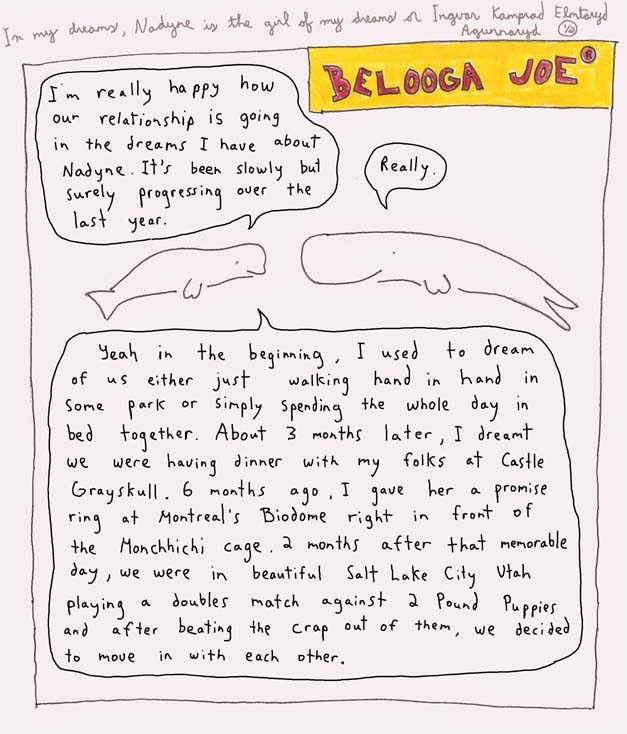 In my dreams, Nadyne is the girl of my dreams or Ingvar Kamprad Elmtaryd
Agunnaryd 1/2
BELOOGA JOE®
I'm really happy how
our relationship is going
in the dreams I have about
Nadyne. It's been slowly but
surely progressing over the
last year.
Really.
Yeah in the beginning, I used to dream
of us either just walking hand in hand in
some park or simply spending the whole day in
bed together. About 3 months later, I dreamt
we were having dinner with my folks at Castle
Grayskull. 6 months ago, I gave her a promise
ring at Montreal's Biodome right in front of
the Monchhichi cage. 2 months after that memorable
day, we were in beautiful Salt Lake City Utah
playing a doubles match against 2 Pound Puppies
and after beating the crap out of them, we decided
to move in with each other.